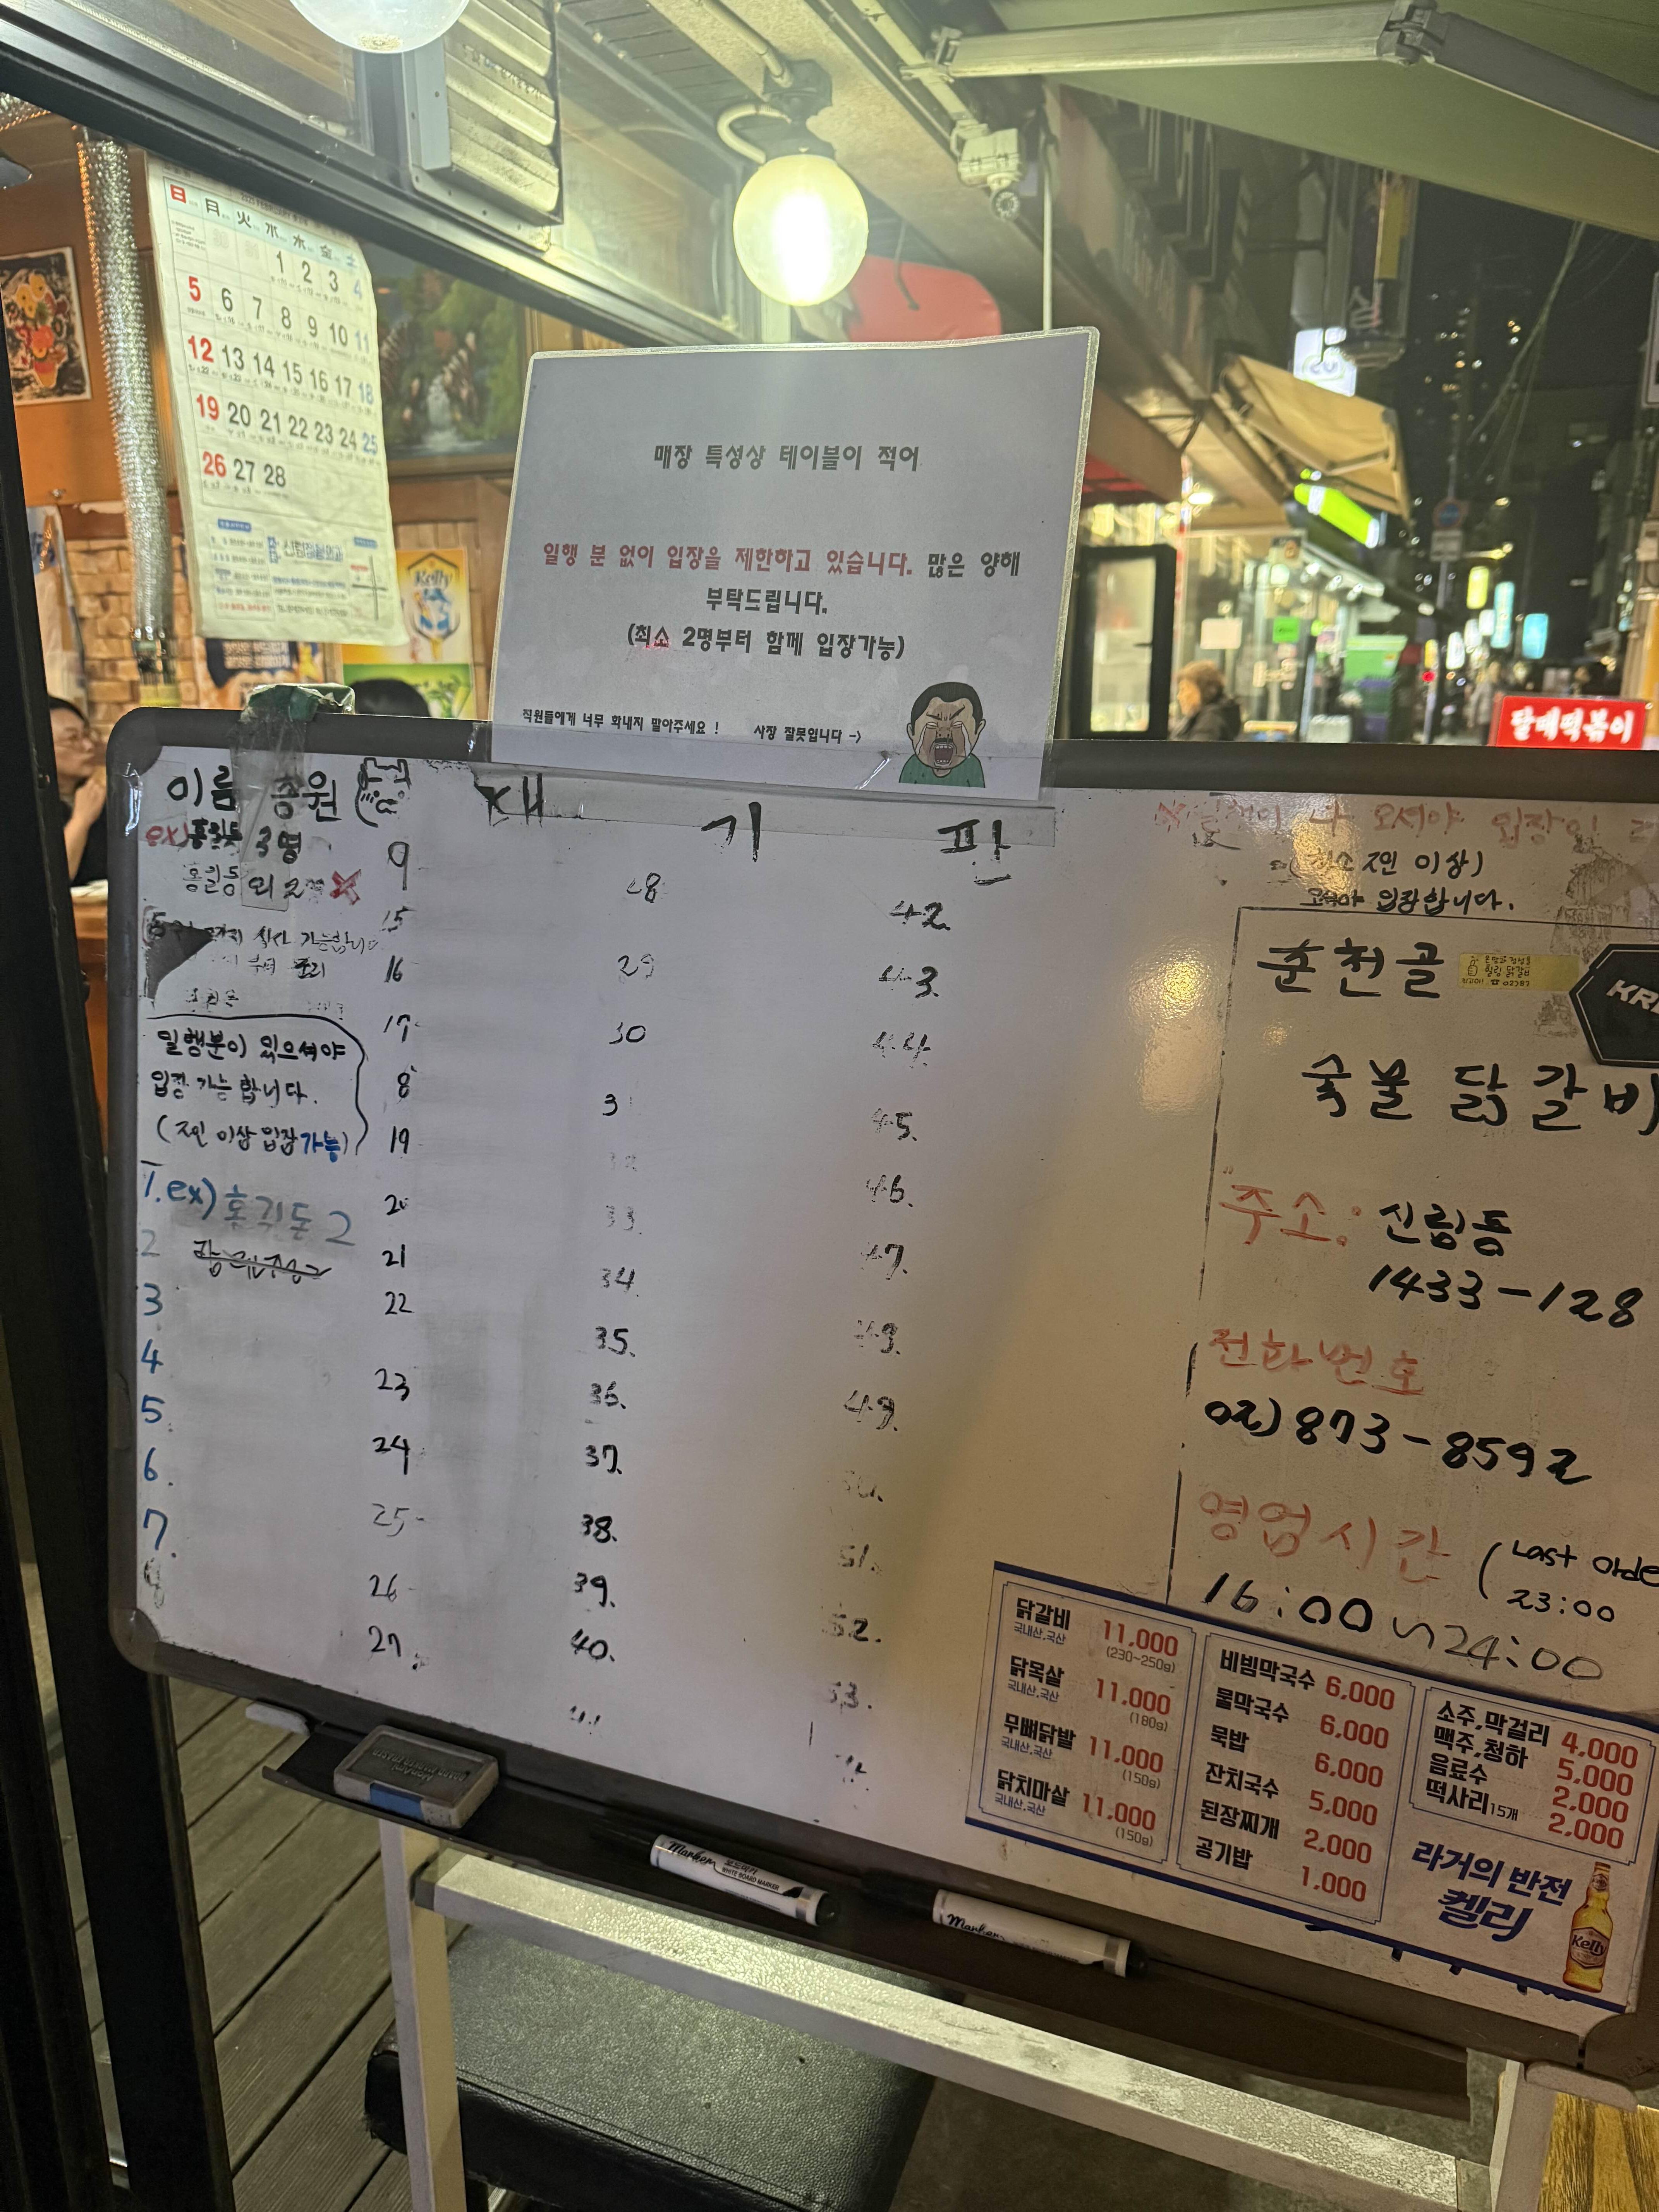 日 月 火 水 木 金 土
1 2 3 4
5 6 7 8 9 10 11
12 13 14 15 16 17 18
19 20 21 22 23 24 25
26 27 28
Kelly
매장 특성상 테이블이 적어
일행 분 없이 입장을 제한하고 있습니다. 많은 양해
부탁드립니다.
(최소 2명부터 함께 입장가능)
직원들에게 너무 화내지 말아주세요 !
사장 잘못입니다 ->
할매떡볶이
이름 총원
대 기 판
ex) 홍길동 3명
홍길동 외 2
일행분이 있으셔야
입장 가능합니다.
(2인 이상 입장가능)
1. ex) 홍길동 2
2
3
4
5
6
7
8
9
15
16
17
8
19
20
21
22
23
24
25
26
27
28
29
30
3
33
34
35
36
37
38
39
40
41
42
43
44
45
46
47
49
51
52
53
오셔야 입장
2인 이상)
입장합니다.
춘천골
숯불 닭갈비
주소: 신림동
1433-128
전화번호
02) 873-8592
영업시간
(Last Orde
23:00
16:00~24:00
닭갈비 11,000
국내산,국산 (230~250g)
닭목살 11,000
국내산,국산 (180g)
무뼈닭발 11,000
국내산,국산 (150g)
닭치마살 11,000
국내산,국산 (150g)
비빔막국수 6,000
물막국수 6,000
묵밥 6,000
잔치국수 5,000
된장찌개 2,000
공기밥 1,000
소주,막걸리 4,000
맥주,청하 5,000
음료수 2,000
떡사리 15개 2,000
라거의 반전
켈리
Kelly
Marker
보드마카
WHITE BOARD MARKER
Marker